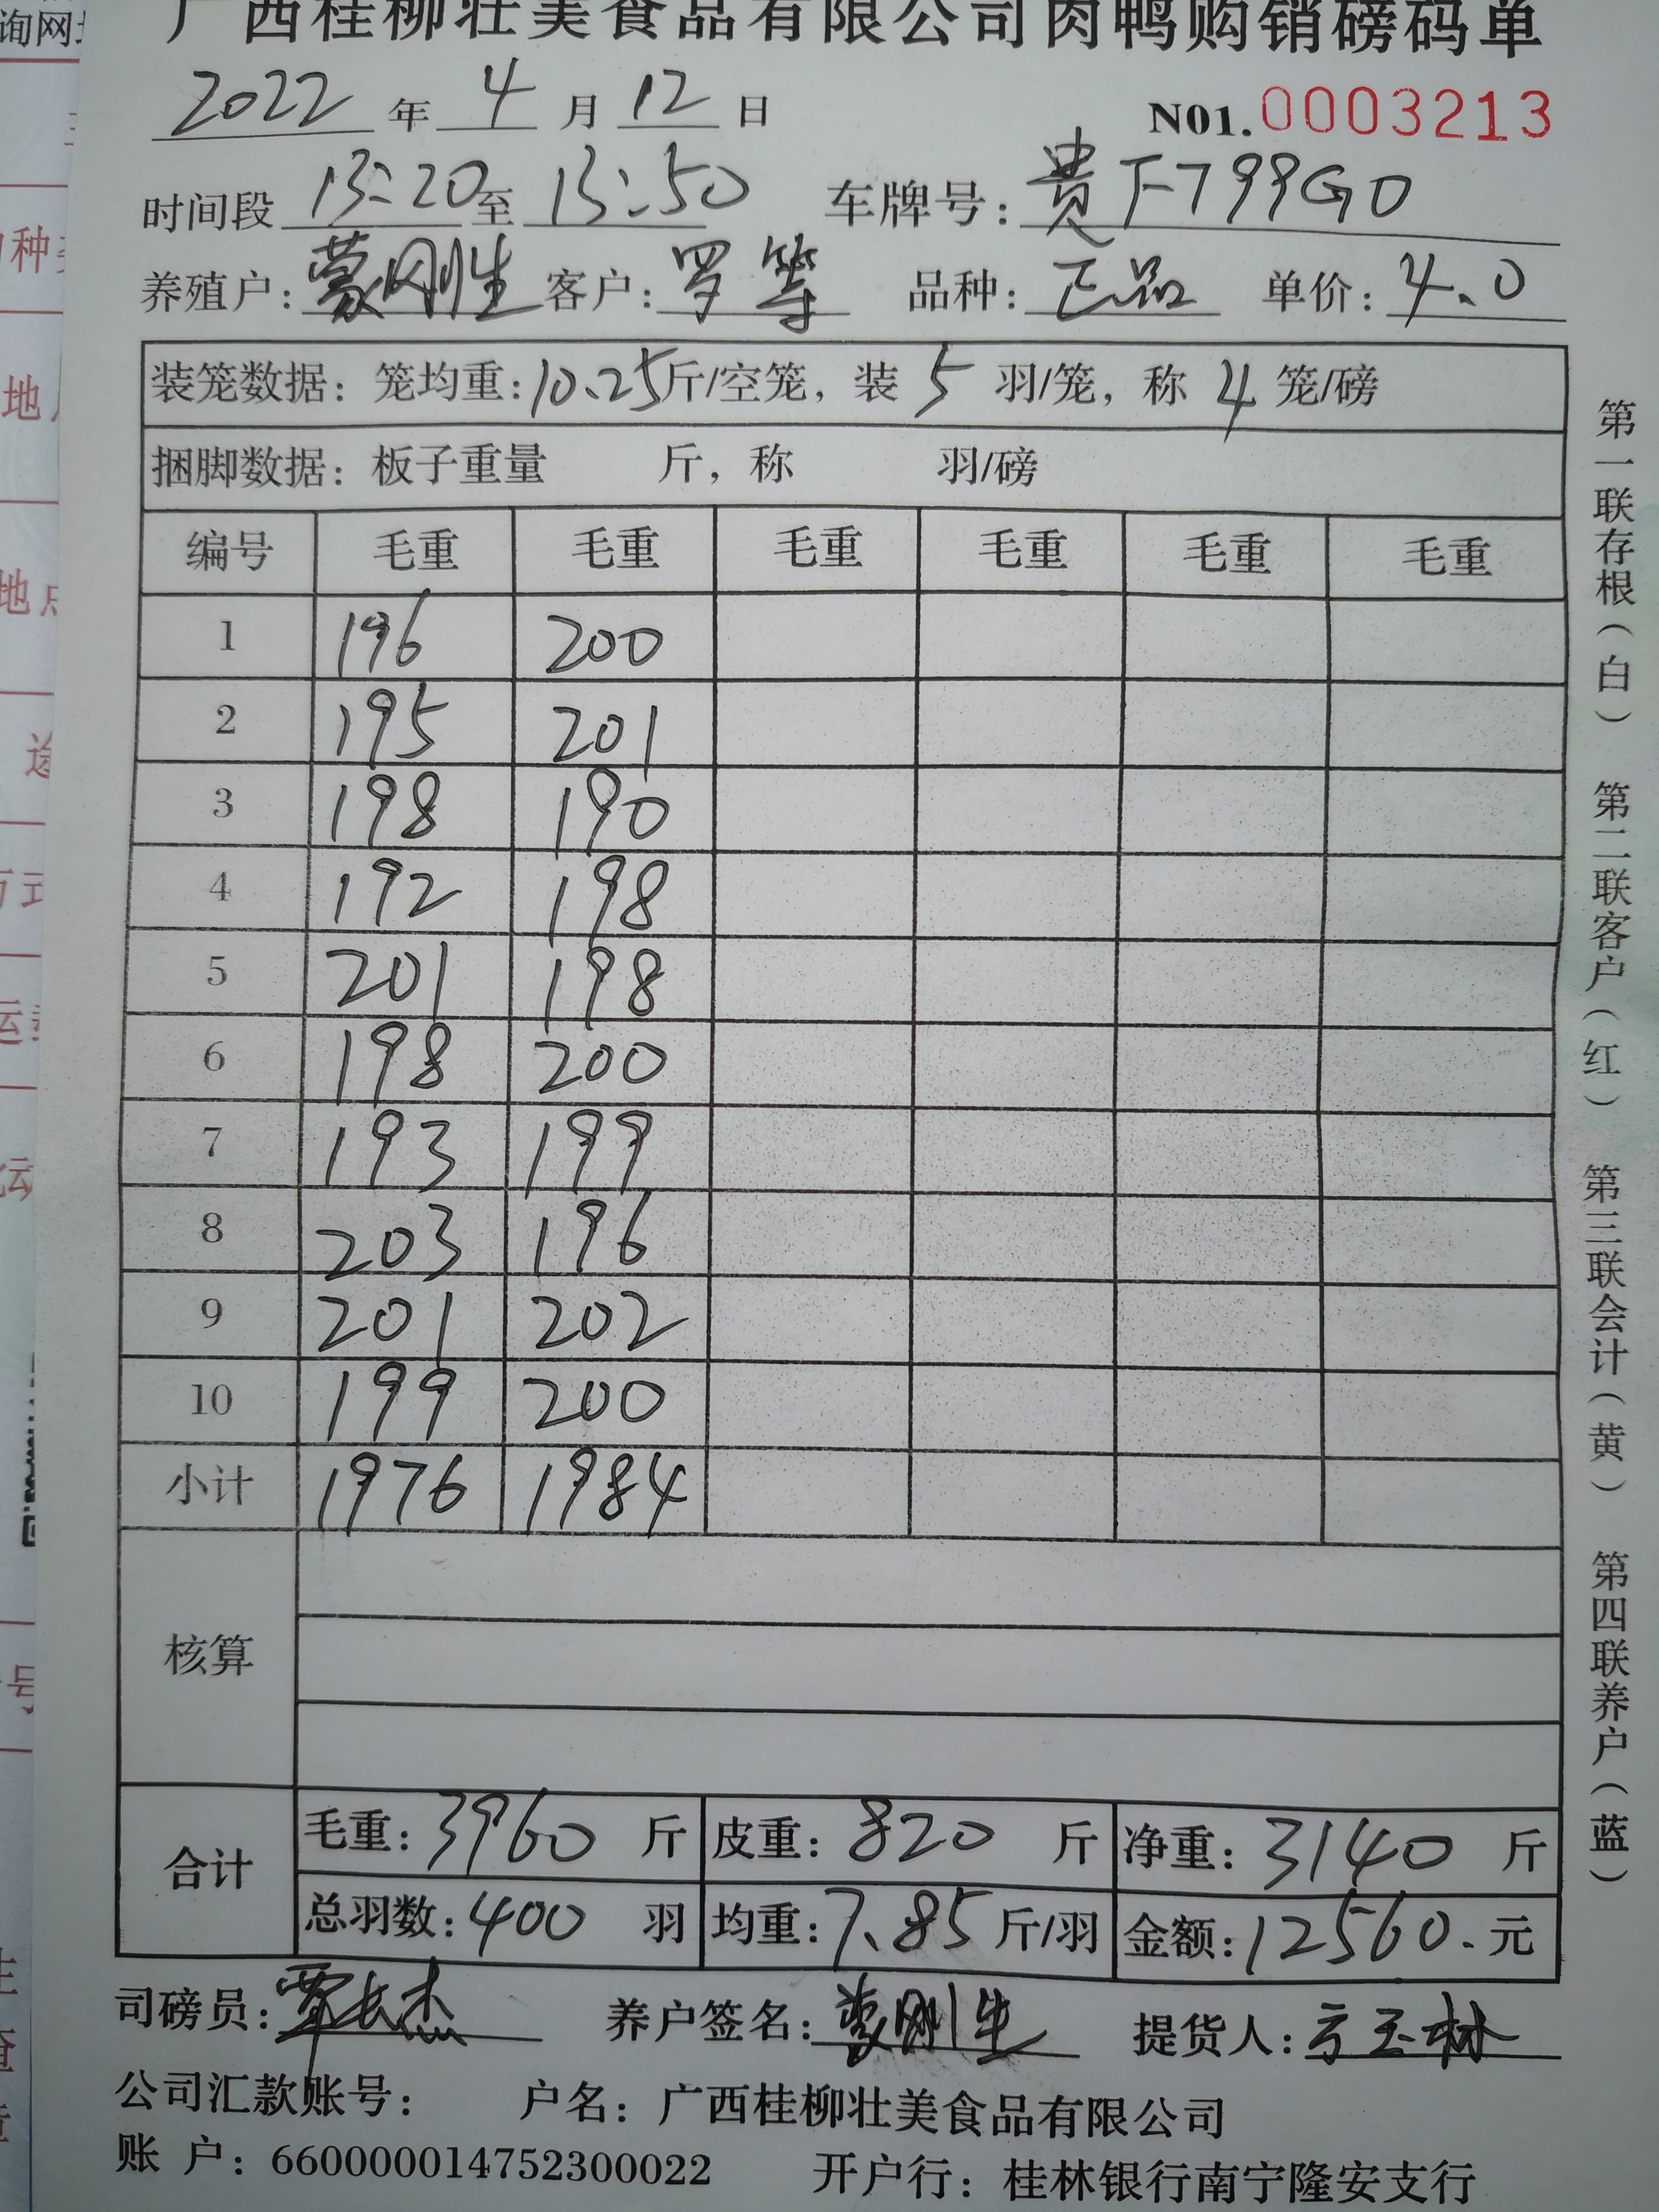 广西桂柳壮美食品有限公司肉鸭购销磅码单
2022 年 4 月 12 日 N01.0003213
时间段 13:20 至 13:50 车牌号: 贵F799G0
养殖户: 蒙刚生 客户: 罗等 品种: 正品 单价: 4.0
装笼数据: 笼均重: 10.25 斤/空笼, 装 5 羽/笼, 称 4 笼/磅
捆脚数据: 板子重量 斤, 称 羽/磅
编号 毛重 毛重 毛重 毛重 毛重 毛重
1 196 200
2 195 201
3 198 190
4 192 198
5 201 198
6 198 200
7 193 199
8 203 196
9 201 202
10 199 200
小计 1976 1984
核算
合计 毛重: 3960 斤 皮重: 820 斤 净重: 3140 斤
总羽数: 400 羽 均重: 7.85 斤/羽 金额: 12560. 元
司磅员: 覃长杰 养户签名: 蒙刚生 提货人:
公司汇款账号: 户名: 广西桂柳壮美食品有限公司
账 户: 660000014752300022 开户行: 桂林银行南宁隆安支行
第一联存根(白) 第二联客户(红) 第三联会计(黄) 第四联养户(蓝)